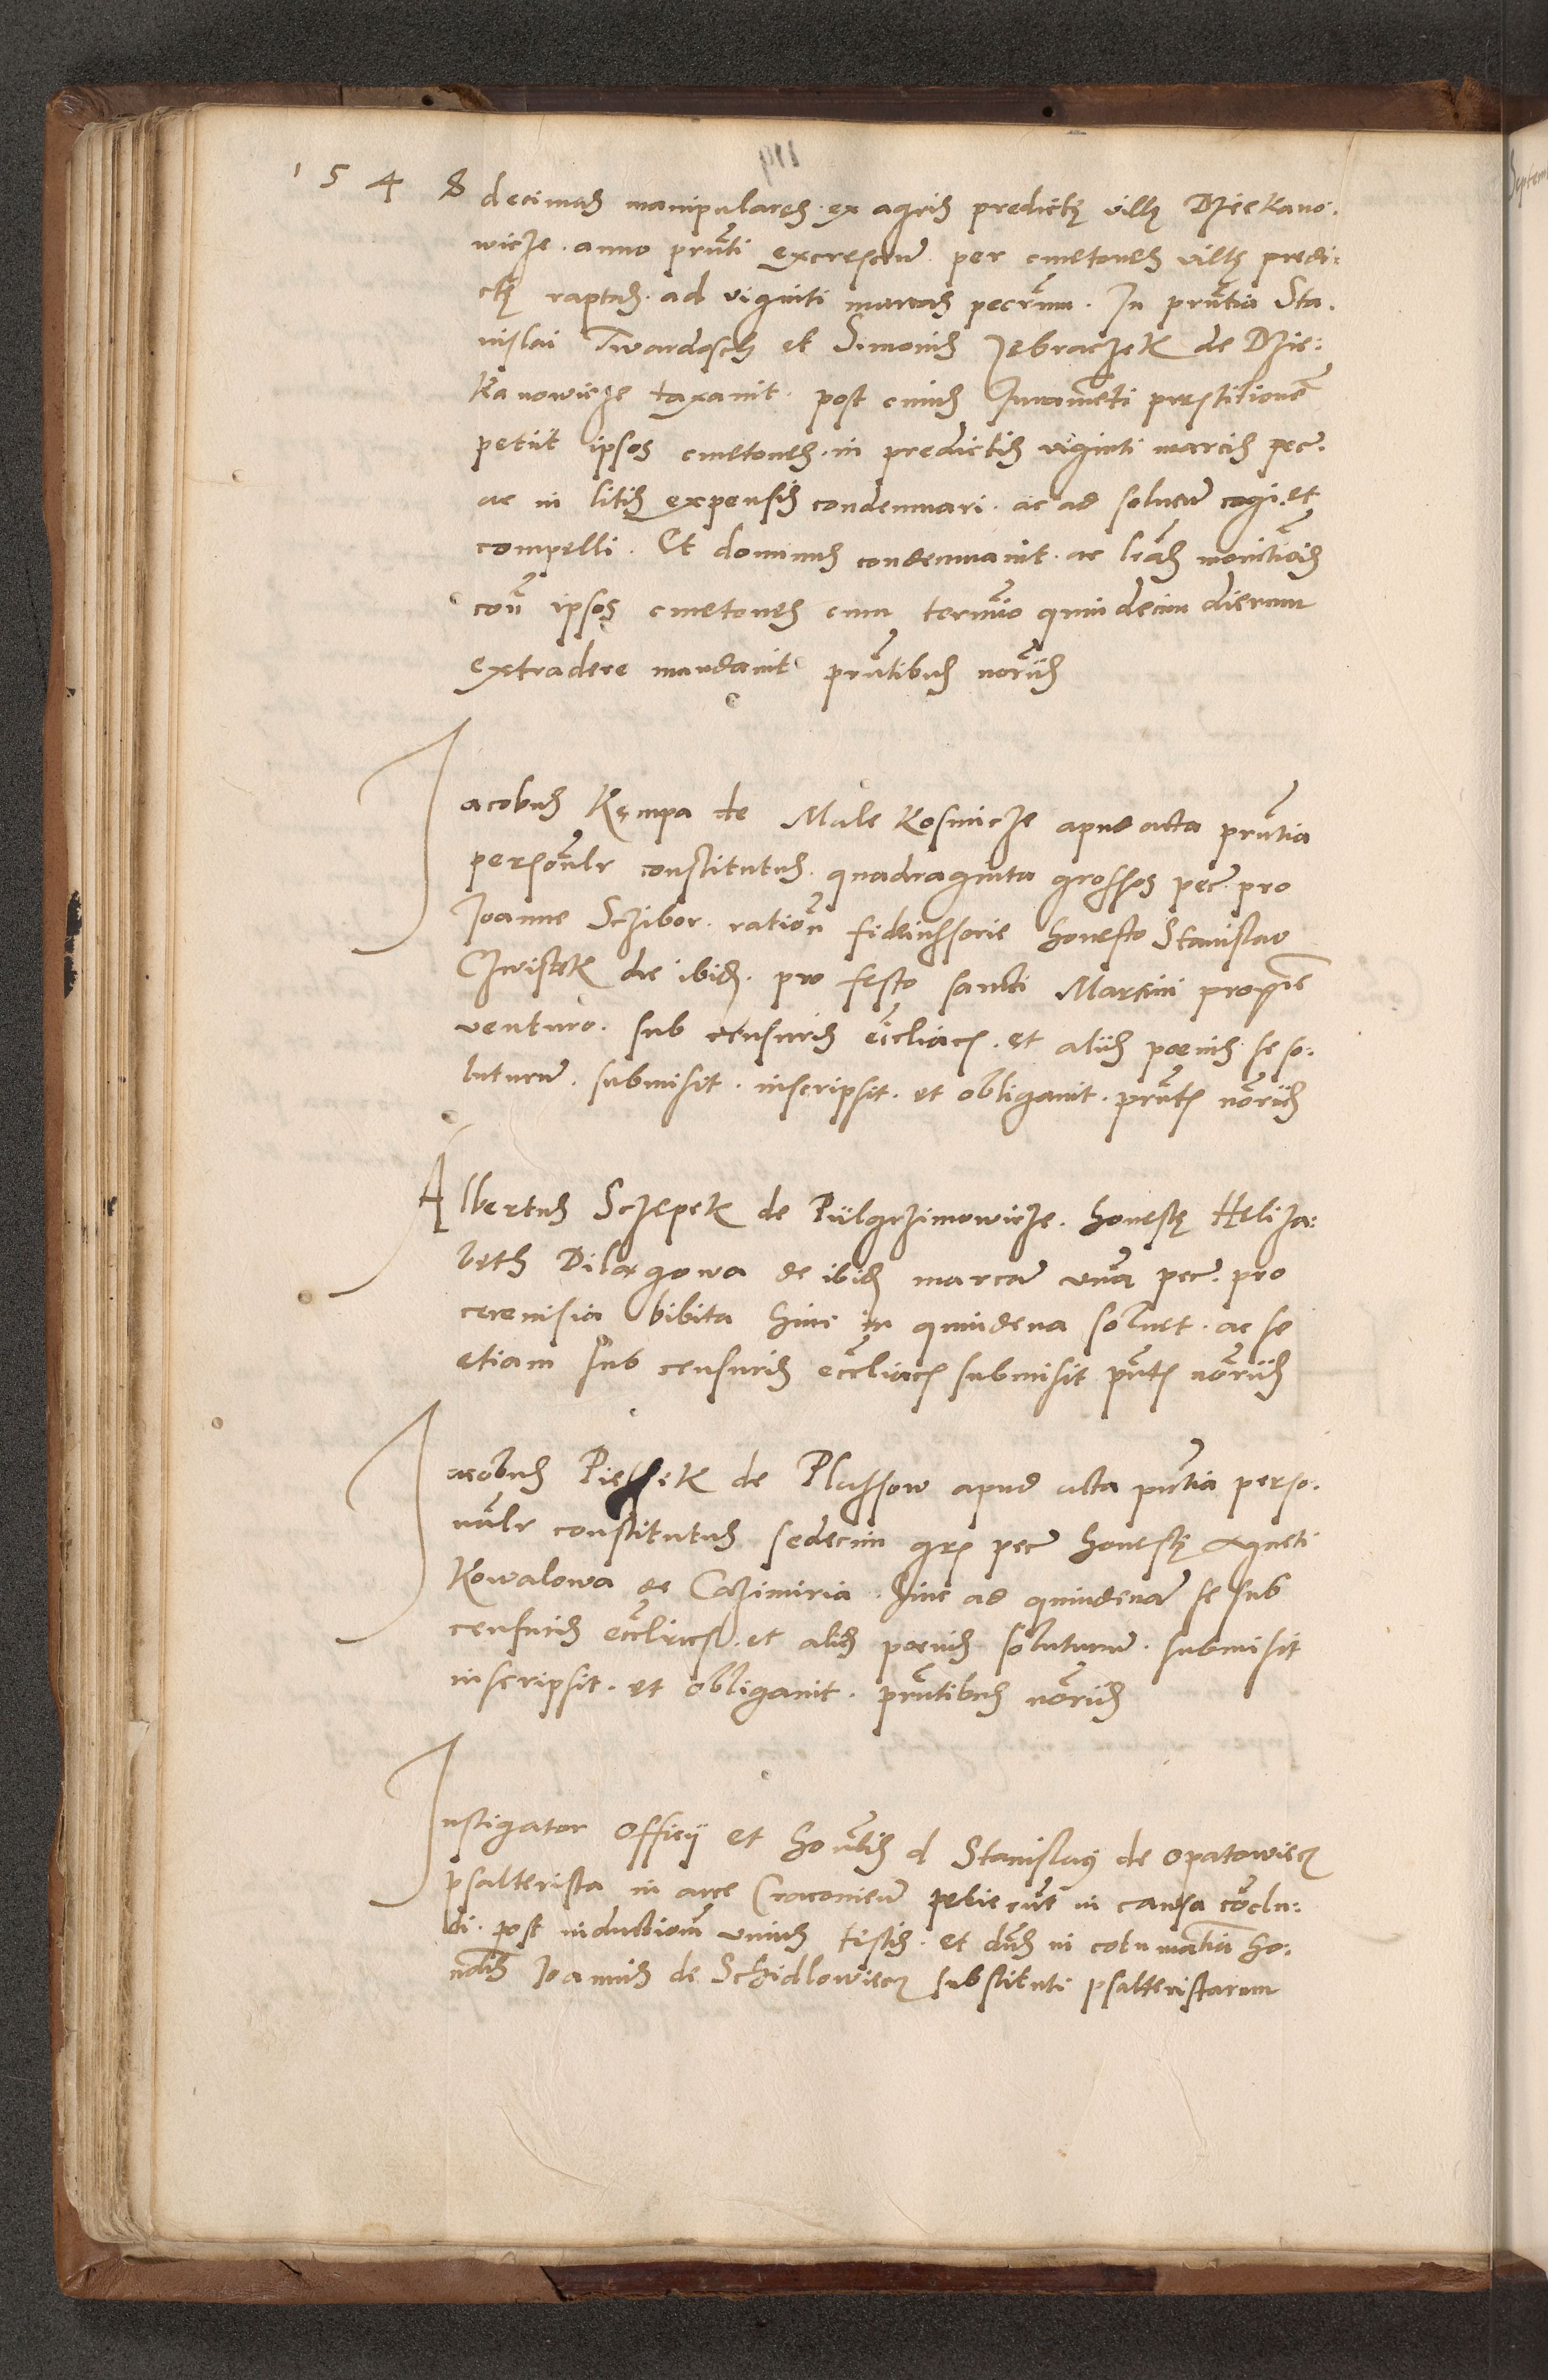 1548
decimas manipulares ex agris predictę villę Dziekano:
wicze anno prnti excrescen per cmetones villę predi:
ctę raptas ad viginti marcas pecrum. In prntia Sta.
nislai Twardosch et Simonis Zebraczek de Dzie:
kanowicze taxavit. post cuius Iuramēti prestitionē
petiit ipsos cmetones in predictis viginti marcis pec.
ac in litis expensis condemnari. ac ad solven cogi. et
compelli. Et dominus condemnavit. ac lras monitorias
con ipsos cmetones cum termino quindecim dierum
extradere mandavit prntibus noriis
Jacobus Kempa de Male Kosmicze apud acta prntia
personalr constitutus. quadraginta grossos pec. pro
Joanne Sczibor. ration fideiussorie honesto Stanislao
Cwistek de ibid. pro festo sancti Martini proxime
venturo. sub censuris ecclīacis. et aliis poenis se so:
luturum. submisit. inscripsit. et obligavit. prntes noriis
Albertus Sczepek de Pielgrzimowicze. honestę Heliza:
beth Dilągowa de ibid marcam unam pec. pro
cerevisia bibita hinc in quindena solvet. ac se
etiam sub censuris ecclīacis submisit prntes noriis
Jacobus Piessek de Plassow apud acta prntia perso.
nalr constitutus sedecim grs pec honestę Agneti
Kowalowa de Cazimiria. hinc ad quindenam se sub
censuris ecclīacis. et aliis poenis soluturum. submisit
inscripsit. et obligavit. prntibus noriis
Instigator officij et honbilis d Stanislaus de Opatowiecz
psalterista in arce Cracovien petierunt in causa conclu:
di. post inductionem unius testis. et dnus in cotumatia ho:
norabilis Joannis de Schidlowiecz substituti psalteristarum